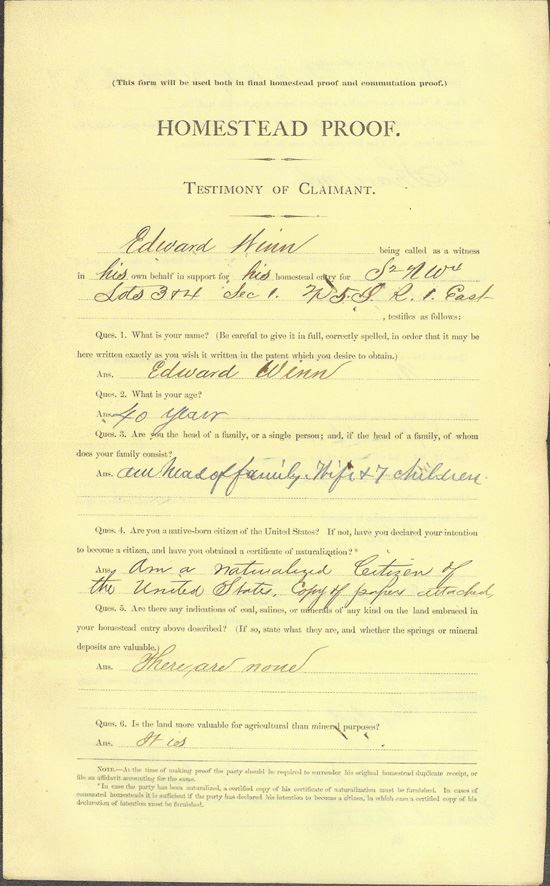 (This form will be used both in final homestead proof and commutation proof.)
HOMESTEAD PROOF.
TESTIMONY OF CLAIMANT.
Edward Winn being called as a witness
in his own behalf in support for his homestead entry for S2 N W4
Lots 3 & 4 Sec 1. 5. S. R. 1. East
, testifies as follows:
Ques. 1. What is your name? (Be careful to give it in full, correctly spelled, in order that it may be
here written exactly as you wish it written in the patent which you desire to obtain.)
Ans. Edward Winn
Ques. 2. What is your age?
Ans. 40 years
Ques. 3. Are you the head of a family, or a single person; and, if the head of a family, of whom
does your family consist?
Ans. am head of family. Wife & 7 children.
Ques. 4. Are you a native-born citizen of the United States? If not, have you declared your intention
to become a citizen, and have you obtained a certificate of naturalization?*
Ans. Am a naturalized Citizen of
the United States. Copy of papers attached
Ques. 5. Are there any indications of coal, salines, or minerals of any kind on the land embraced in
your homestead entry above described? (If so, state what they are, and whether the springs or mineral
deposits are valuable.)
Ans. There are none
Ques. 6. Is the land more valuable for agricultural than mineral purposes?
Ans. It is
NOTE.—At the time of making proof the party should be required to surrender his original homestead duplicate receipt, or
file an affidavit accounting for the same.
*In case the party has been naturalized, a certified copy of his certificate of naturalization must be furnished. In cases of
commuted homesteads it is sufficient if the party has declared his intention to become a citizen, in which case a certified copy of his
declaration of intention must be furnished.